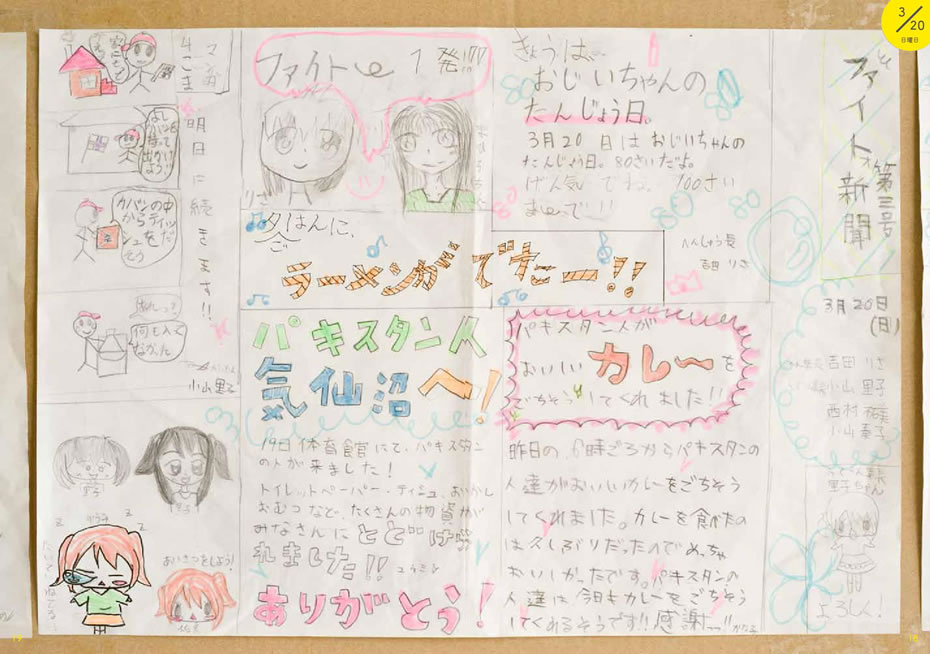 3/20
日曜日
ファイト新聞
第三号
3月20日
(日)
吉田りさ
小山里子
西村祐美
小山奏子
里子ちゃん
よろしく!
きょうは、
おじいちゃんの
たんじょう日。
3月20日はおじいちゃんの
たんじょう日。80さいだよ。
げん気でね。100さい
まで!!
へんしゅう長
吉田りさ
ファイトー1発!!!
りさ
夕ごはんに、
ラーメンがでたー!!
パキスタン人が
おいしいカレーを
ごちそうしてくれました!!
昨日の、6時ごろからパキスタンの
人達がおいしいカレーをごちそう
してくれました。カレーを食べたの
は久しぶりだったのでめっちゃ
おいしかったです。パキスタンの
人達は、今日もカレーをごちそう
してくれるそうです!!感謝
パキスタン人
気仙沼へ!
19日体育館にて、パキスタン
の人が来ました!
トイレットペーパー・ティッシュ、おかし
おむつなど、たくさんの物資が
みなさんにとどけ
られました!!
ありがとう!
マンガ
4こま
はし
を
持って
出かけ
よう!
カバンの中
からティッ
シュを
だそう
あれっ?
何も入って
なかった
明日に続きます!!
小山里子
里子
おいさつをしよう!
z
z
z
19
18